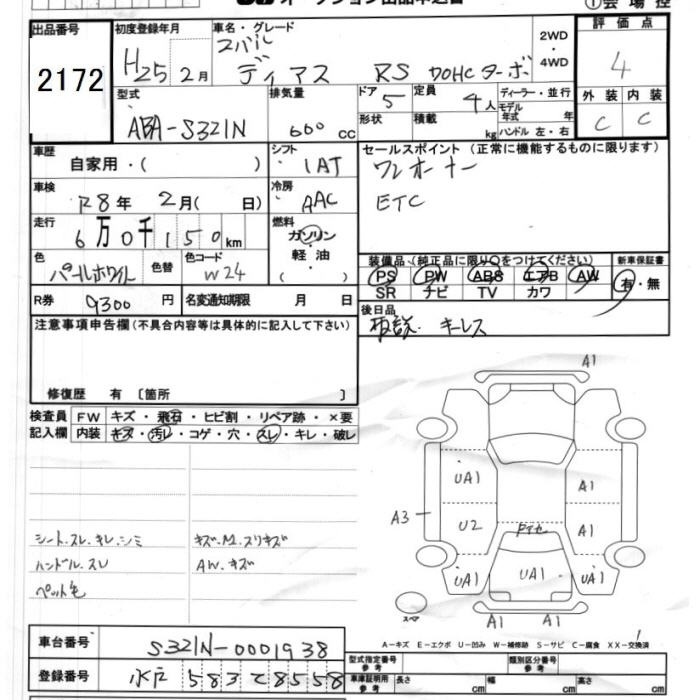 オークション出品申込書 ①会場控
出品番号 2172
初度登録年月 H25 2月
車名・グレード スバル ディアス RS DOHCターボ
2WD・4WD
評価点 4
外装 C 内装 C
型式 ABA-S321N
排気量 660 cc
ドア 5 定員 4人
形状 積載 kg
ディーラー・並行
モデル年式 年式
ハンドル 左・右
車歴 自家用・( )
シフト IAT
車検 R8年 2月( 日)
冷房 AAC
走行 6万0千150km
燃料 ガソリン・軽油・( )
色 パールホワイト 色替
色コード W24
R券 9300円
名変通知期限 月 日
セールスポイント (正常に機能するものに限ります)
ワンオーナー
ETC
装備品(純正品に限り○をつけてください)
PS PW ABS エアB AW
SR ナビ TV カワ
新車保証書 有・無
後日品
取説、キーレス
注意事項申告欄(不具合内容等は具体的に記入して下さい)
修復歴 有 〔箇所 〕
検査員記入欄
FW キズ・飛石・ヒビ割・リペア跡・×要
内装 キズ・汚レ・コゲ・穴・スレ・キレ・破レ
シート.スレ.キレ.シミ
ハンドル.スレ
ペット毛
キズ.M.スリキズ
AW.キズ
A1
UA1 A1
A3 U2 A1
UA1 UA1 UA1
スペア
A1 A1
A-キズ E-エクボ U-凹み W-補修跡 S-サビ C-腐食 XX-交換済
車台番号 S321N-0001938
登録番号 水戸 583 28558
型式指定番号 参考
類別区分番号 参考
車庫証明用 参考 長さ cm 幅 cm 高さ cm